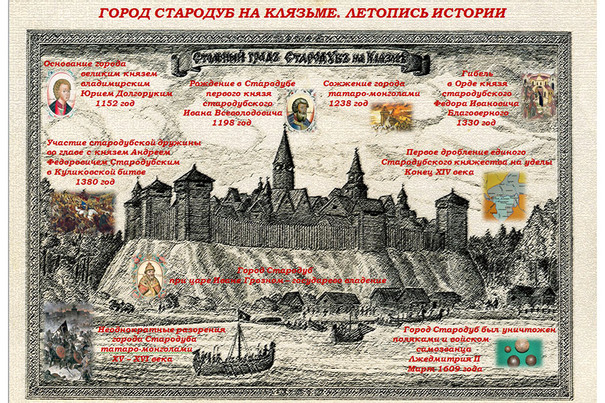 ГОРОД СТАРОДУБ НА КЛЯЗЬМЕ. ЛЕТОПИСЬ ИСТОРИИ
СТОЛЬНЫЙ ГРАДЪ СТАРОДУБЪ НА КЛЯЗМЕ
Основание города
великим князем
владимирским
Юрием Долгоруким
1152 год
Рождение в Стародубе
первого князя
стародубского
Ивана Всеволодовича
1198 год
Сожжение города
татаро-монголами
1238 год
Гибель
в Орде князя
стародубского
Федора Ивановича
Благоверного
1330 год
Участие стародубской дружины
во главе с князем Андреем
Федоровичем Стародубским
в Куликовской битве
1380 год
Первое дробление единого
Стародубского княжества на уделы
Конец XIV века
Город Стародуб
при царе Иване Грозном – государево владение
Неоднократные разорения
города Стародуба
татаро-монголами
XV – XVI века
Город Стародуб был уничтожен
поляками и войском
самозванца
Лжедмитрия II
Март 1609 года